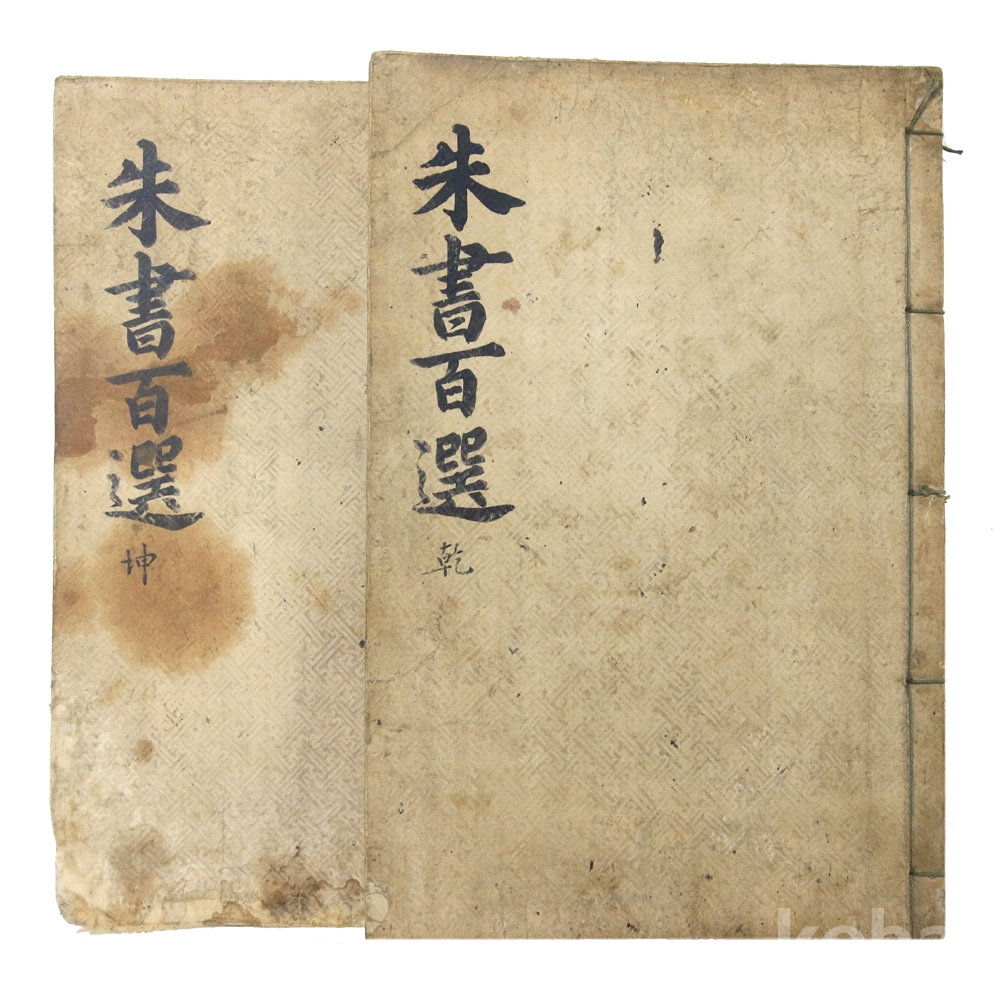 朱書百選
乾
朱書百選
坤